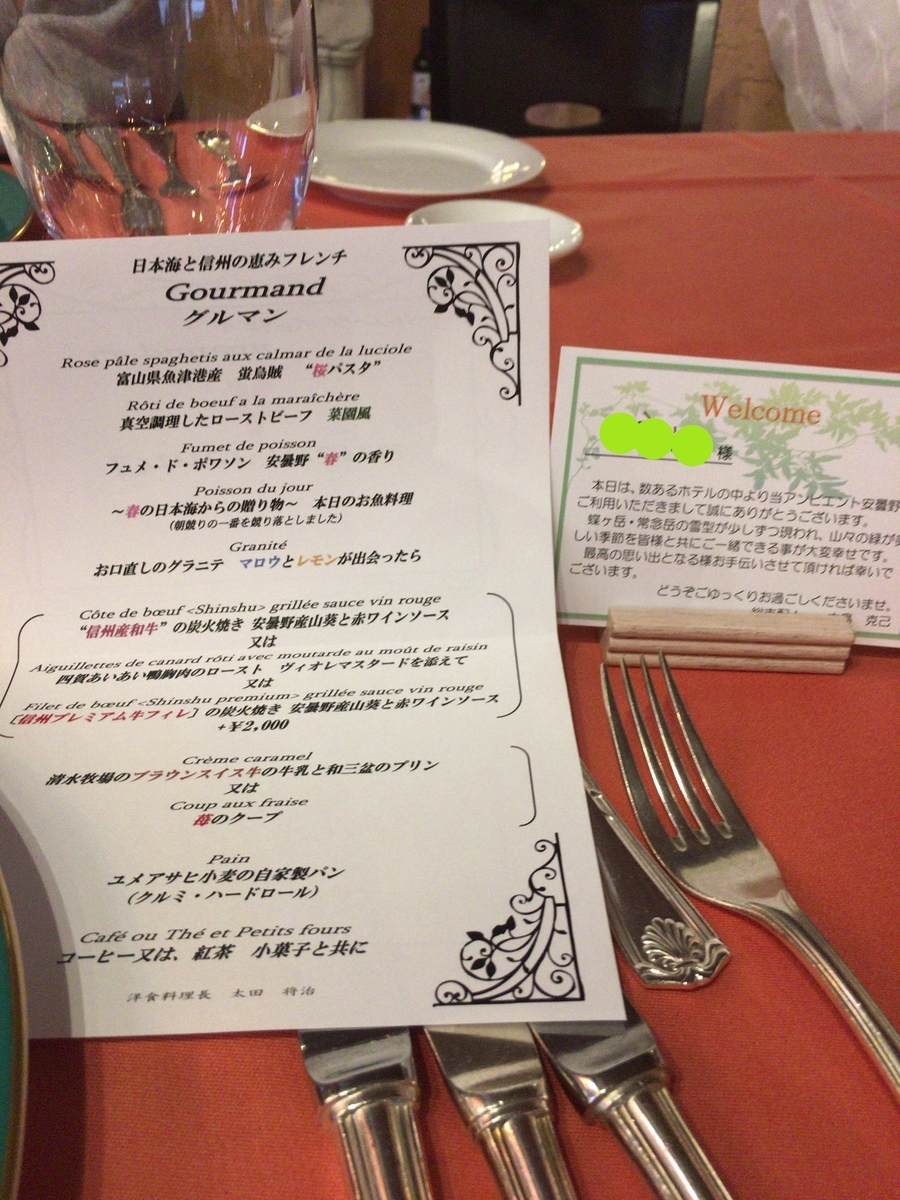 日本海と信州の恵みフレンチ
Gourmand
グルマン
Rose pâle spaghetis aux calmar de la luciole
富山県魚津港産　蛍烏賊　“桜パスタ”
Rôti de boeuf a la maraîchère
真空調理したローストビーフ　菜園風
Fumet de poisson
フュメ・ド・ポワソン　安曇野“春”の香り
Poisson du jour
～春の日本海からの贈り物～　本日のお魚料理
(朝競りの一番を競り落としました)
Granité
お口直しのグラニテ　マロウとレモンが出会ったら
Côte de bœuf <Shinshu> grillée sauce vin rouge
“信州産和牛”の炭火焼き 安曇野産山葵と赤ワインソース
又は
Aiguillettes de canard rôti avec moutarde au moût de raisin
四賀あいあい鴨胸肉のロースト　ヴィオレマスタードを添えて
又は
Filet de bœuf <Shinshu premium> grillée sauce vin rouge
［信州プレミアム牛フィレ］の炭火焼き 安曇野産山葵と赤ワインソース
+¥2,000
Crème caramel
清水牧場のブラウンスイス牛の牛乳と和三盆のプリン
又は
Coup aux fraise
苺のクープ
Pain
ユメアサヒ小麦の自家製パン
（クルミ・ハードロール）
Café ou Thé et Petits fours
コーヒー又は、紅茶　小菓子と共に
洋食料理長　太田　将治
Welcome
様
本日は、数あるホテルの中より当アンビエント安曇野
ご利用いただきまして誠にありがとうございます。
蝶ヶ岳・常念岳の雪型が少しずつ現われ、山々の緑が
しい季節を皆様と共にご一緒できる事が大変幸せです。
最高の思い出となる様お手伝いさせて頂ければ幸いで
ございます。
どうぞごゆっくりお過ごしくださいませ。
克己